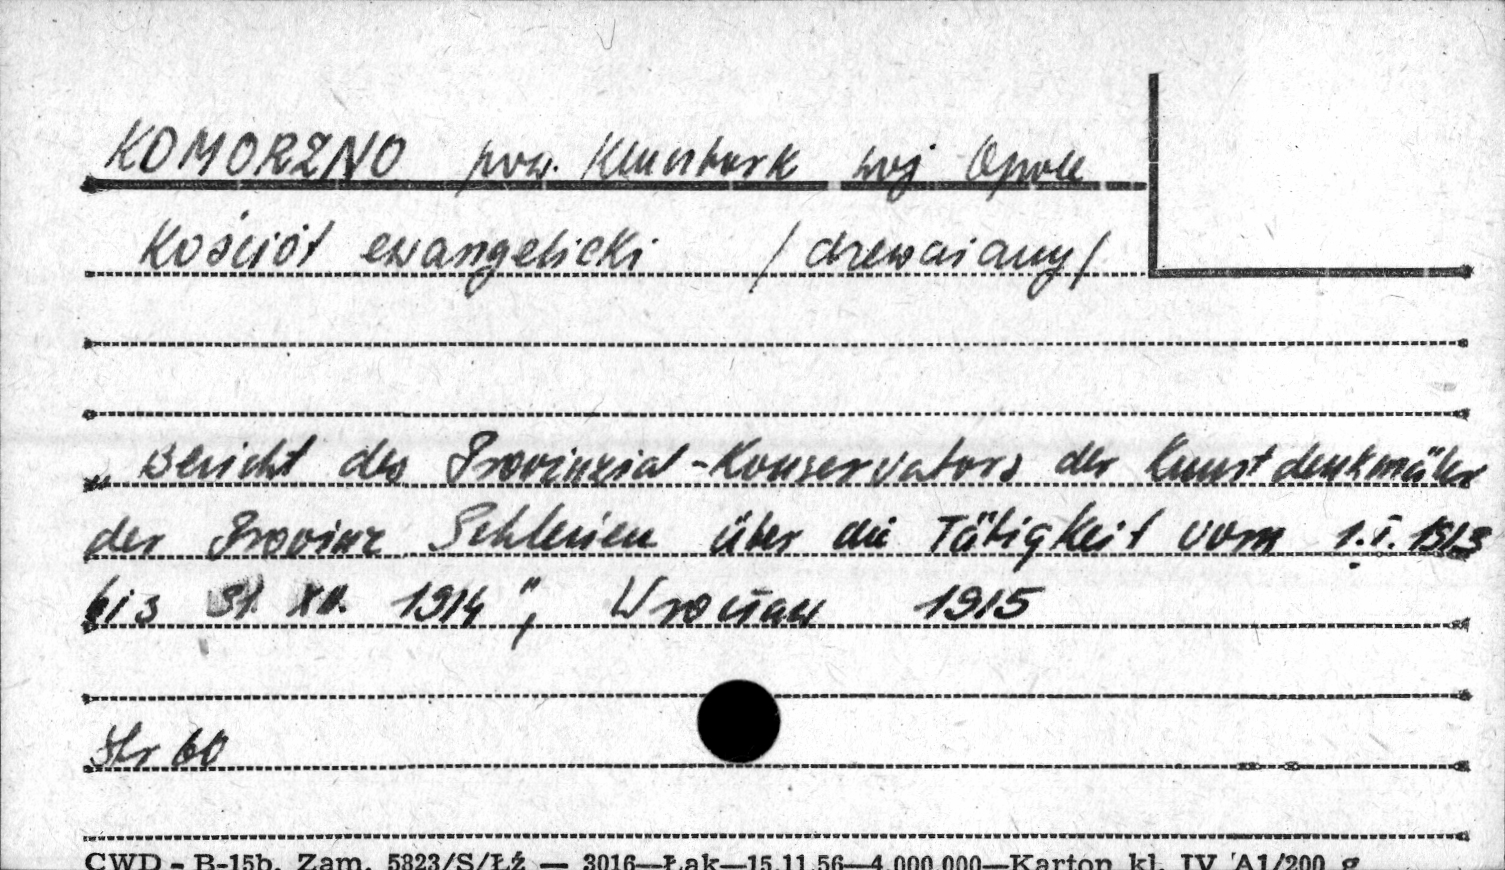 KOMORZNO pow. Kluczbork woj Opole
Kościół ewangelicki /drewniany/
„Bericht des Provinzial-Konservators der Kunstdenkmäler
der Provinz Schlesien über die Tätigkeit vom 1.I.1913
bis 31. XII. 1914", Wrocław 1915
Str 60
CWD - B-15b. Zam. 5823/S/Łź — 3016—Łak—15.11.56—4.000.000—Karton kl. IV A1/200 g